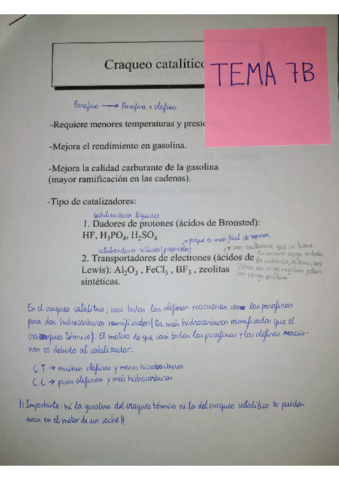 Craqueo catalítico
TEMA 7B
Parafina → Parafina + olefina
-Requiere menores temperaturas y presio
-Mejora el rendimiento en gasolina.
-Mejora la calidad carburante de la gasolina
(mayor ramificación en las cadenas).
-Tipo de catalizadores:
catalizadores líquidos
1. Dadores de protones (ácidos de Bronsted):
HF, H3PO4, H2SO4
porque es más fácil de separar
catalizadores sólidos
2. Transportadores de electrones (ácidos de
Lewis): Al2O3 , FeCl3 , BF3 , zeolitas
sintéticas.
En el craqueo catalítico, casi todas las olefinas reaccionan con las parafinas
para dar hidrocarburos ramificados (da más hidrocarburos ramificados que el
craqueo térmico). El motivo de que casi todas las parafinas y las olefinas reaccio-
nen es debido al catalizador.
C.T → muchas olefinas y menos hidrocarburos
C.C → pocas olefinas y más hidrocarburos
!! Importante: ni la gasolina del craqueo térmico ni la del craqueo catalítico se pueden
usar en el motor de un coche !!